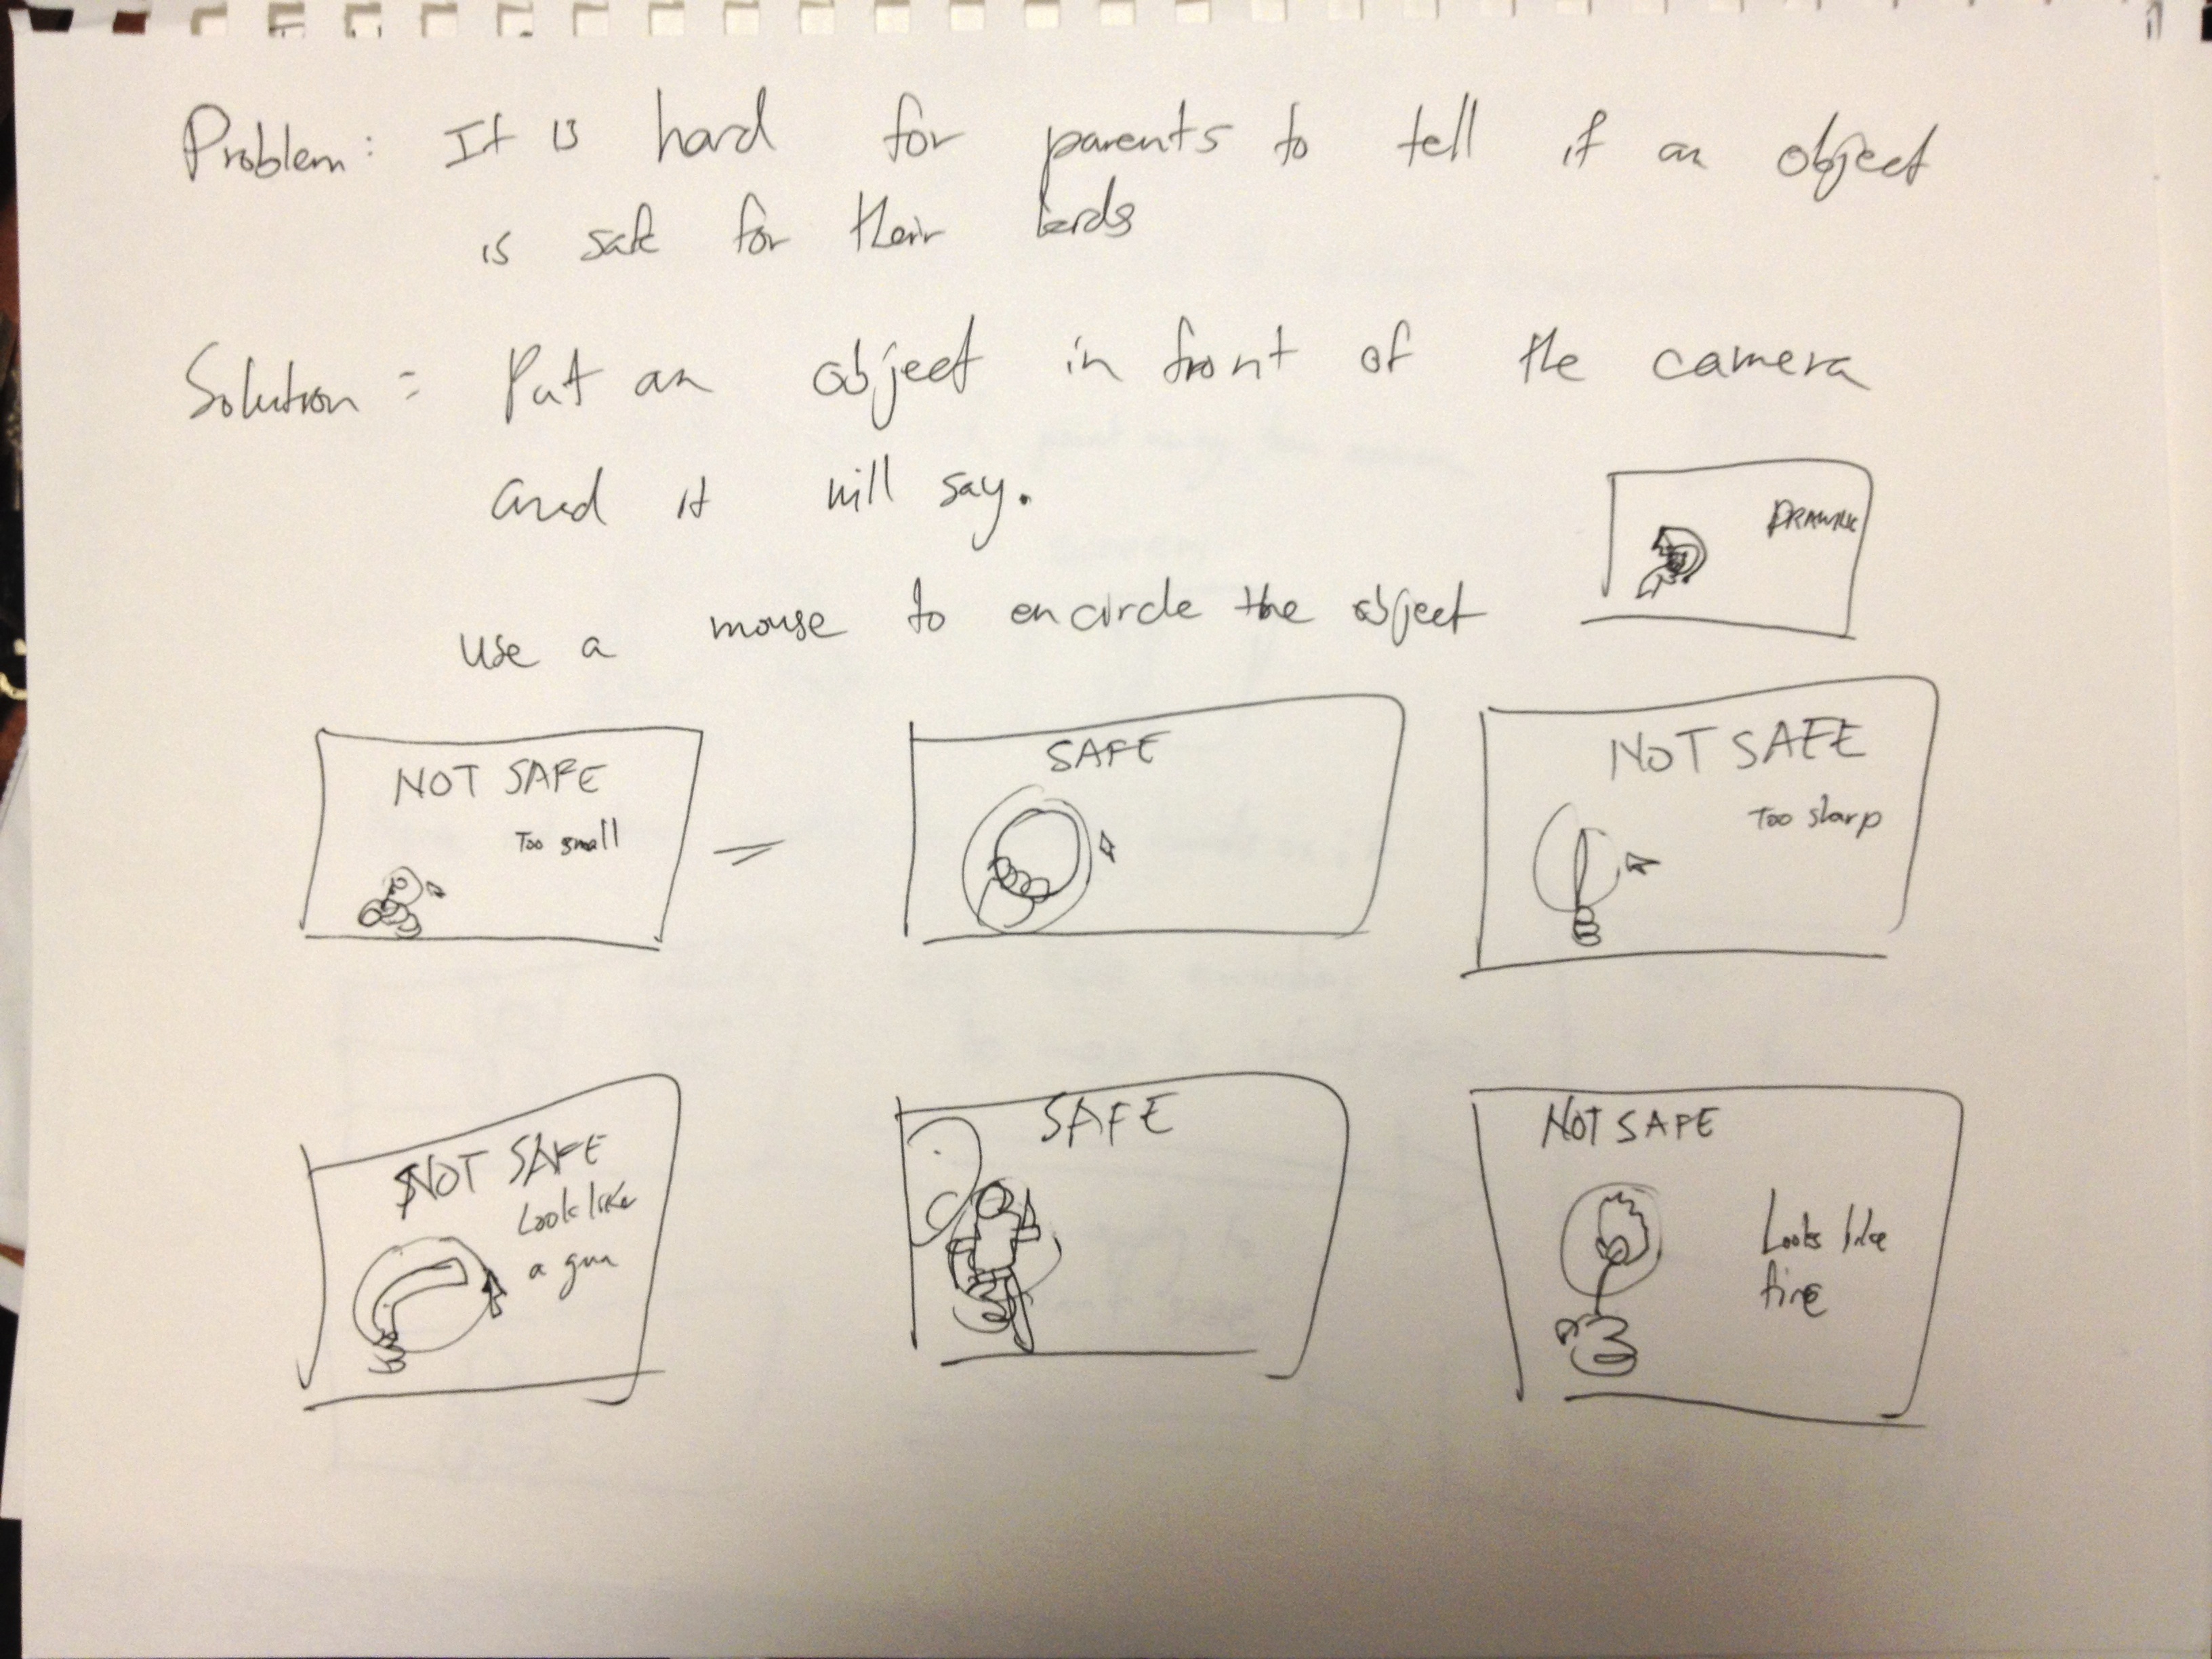 Problem: It is hard for parents to tell if an object
is safe for their kids
Solution: Put an object in front of the camera
and it will say.
use a mouse to encircle the object
NOT SAFE
Too small
SAFE
NOT SAFE
Too sharp
NOT SAFE
Look like
a gun
SAFE
NOT SAFE
Looks like
fire